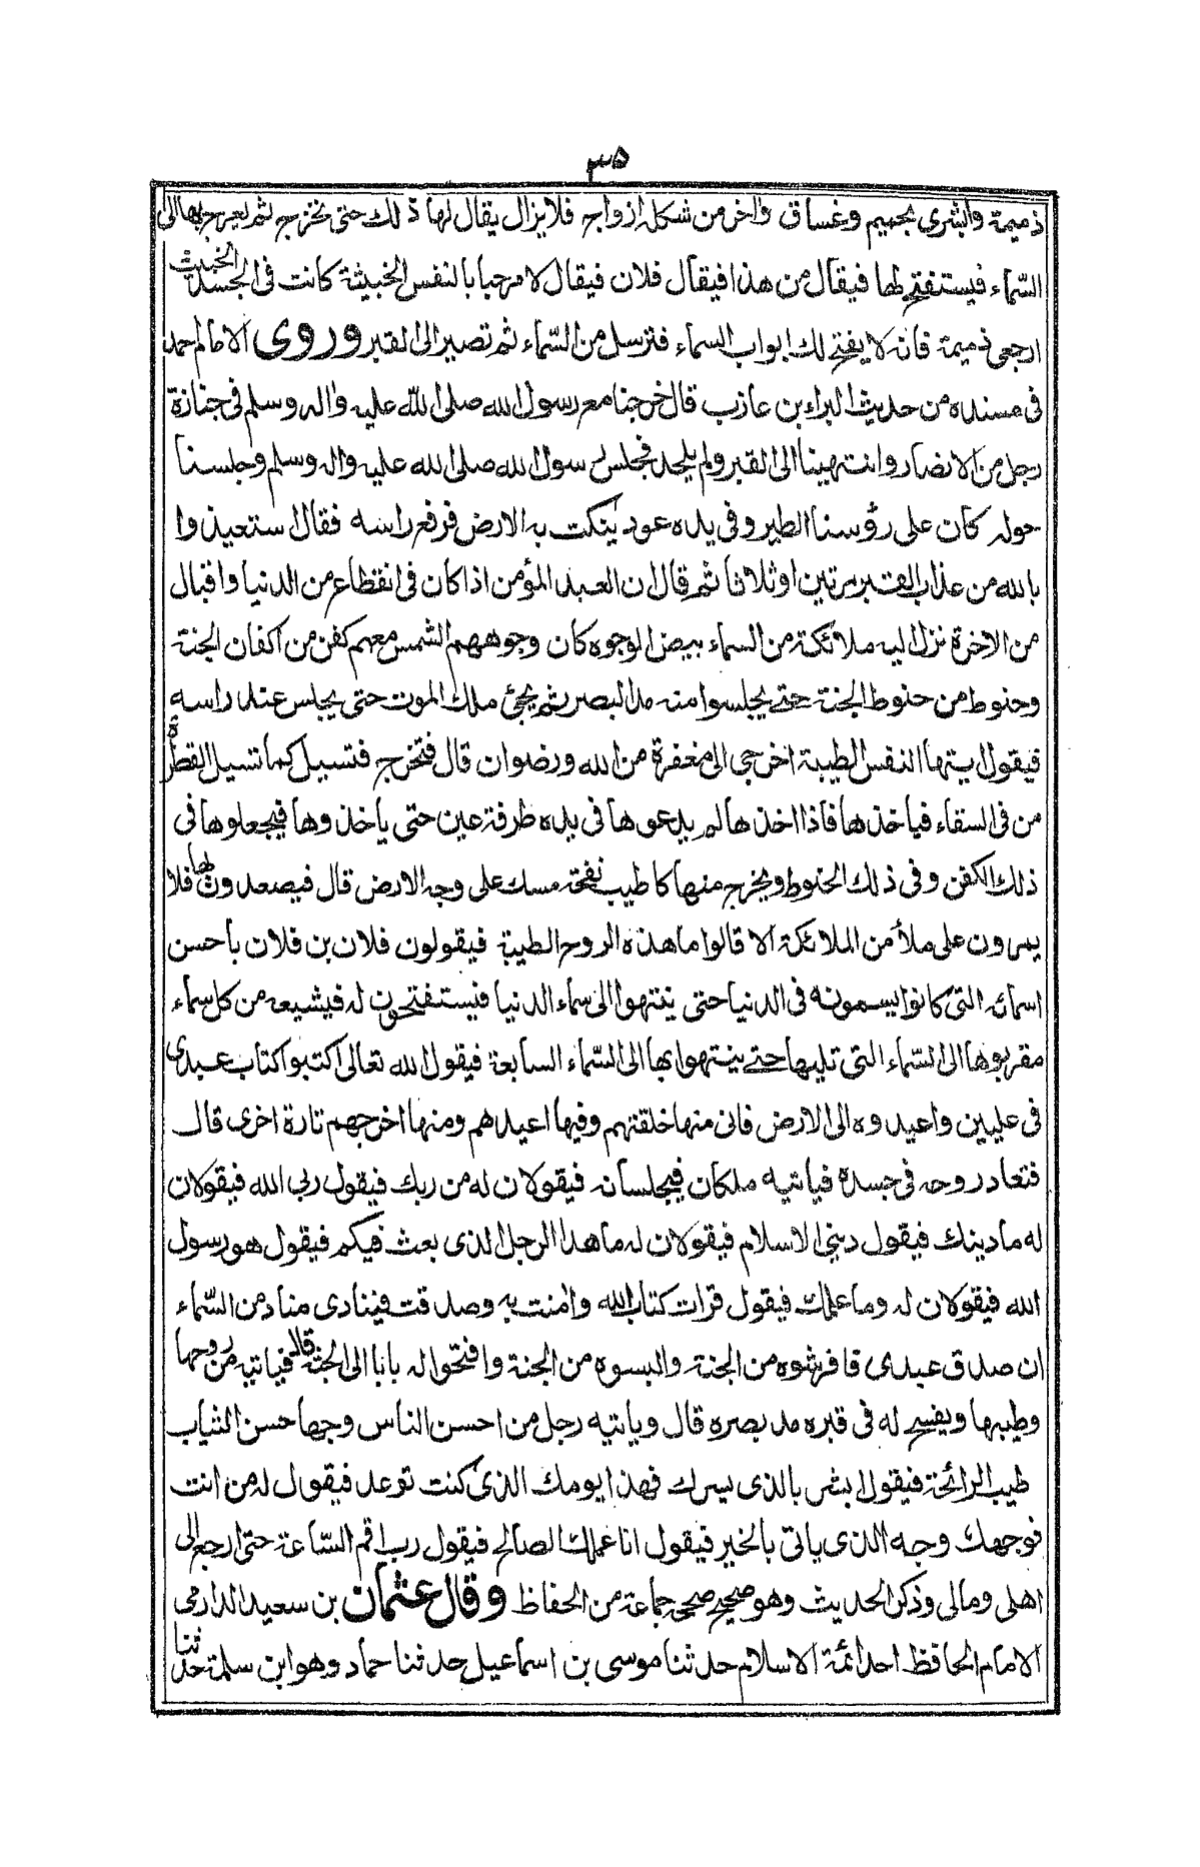 ٣٥
ذميمة وابشرى بحميم وغساق واخر من شكله ازواج فلا يزال يقال لها ذلك حتى تخرج ثم يعرج بها الى
السّماء فيستفتح لها فيقال من هذا فيقال فلان فيقال لا مرحبا بالنفس الخبيثة كانت فى الجسد الخبيث
ارجعى ذميمة فانه لا يفتح لك ابواب السماء فترسل من السّماء ثم تصير الى القبر وروى الامام احمد
فى مسنده من حديث البراء بن عازب قال خرجنا مع رسول الله صلى الله عليه واله وسلم فى جنازة
رجل من الانصار وانتهينا الى القبر ولم يلحد فجلس رسول الله صلى الله عليه واله وسلم وجلسنا
حوله كان على رؤسنا الطير وفى يده عود ينكت به الارض فرفع راسه فقال استعيذوا
بالله من عذاب القبر مرتين او ثلاثا ثم قال ان العبد المؤمن اذا كان فى انقطاع من الدنيا واقبال
من الاخرة نزل اليه ملائكة من السماء بيض الوجوه كان وجوههم الشمس معهم كفن من اكفان الجنة
وحنوط من حنوط الجنة حتے يجلسوا منه مد البصر ثم يجئ ملك الموت حتى يجلس عند راسه
فيقول ايتها النفس الطيبة اخرجى الى مغفرة من الله ورضوان قال فتخرج فتسيل كما تسيل القطرة
من فى السقاء فياخذها فاذا اخذها لم يدعوها فى يده طرفة عين حتى ياخذوها فيجعلوها فى
ذلك الكفن وفى ذلك الحنوط ويخرج منها كاطيب نفحة مسك على وجه الارض قال فيصعدون بها فلا
يمرون على ملأ من الملائكة الا قالوا ما هذه الروح الطيبة فيقولون فلان بن فلان بأحسن
اسمائه التى كانوا يسمونه فى الدنيا حتى ينتهوا الى سماء الدنيا فيستفتحون له فيشيعه من كل سماء
مقربوها الى السّماء التى تليها حتے ينتهوا بها الى السّماء السابعة فيقول الله تعالى اكتبوا كتاب عبدى
فى عليين واعيدوه الى الارض فانى منها خلقتهم وفيها اعيدهم ومنها اخرجهم تارة اخرى قال
فتعاد روحه فى جسده فياتيه ملكان فيجلسانه فيقولان له من ربك فيقول ربى الله فيقولان
له ما دينك فيقول دينى الاسلام فيقولان له ما هذا الرجل الذى بعث فيكم فيقول هو رسول
الله فيقولان له وما علمك فيقول قرات كتاب الله وامنت به وصدقت فينادى مناد من السّماء
ان صدق عبدى فافرشوه من الجنة والبسوه من الجنة وافتحوا له بابا الى الجنة قال فياتيه من روحها
وطيبها ويفسح له فى قبره مد بصره قال وياتيه رجل من احسن الناس وجها حسن الثياب
طيب الرائحة فيقول ابشر بالذى يسرك فهذا يومك الذى كنت توعد فيقول له من انت
فوجهك وجه الذى ياتى بالخير فيقول انا عملك الصالح فيقول رب اقم السّاعة حتى ارجع الى
اهلى ومالى وذكر الحديث وهو صحيح صححه جماعة من الحفاظ وقال عثمان بن سعيد الدارمى
الامام الحافظ احد ائمة الاسلام حدثنا موسى بن اسماعيل حدثنا حماد وهو ابن سلمة حدثنا